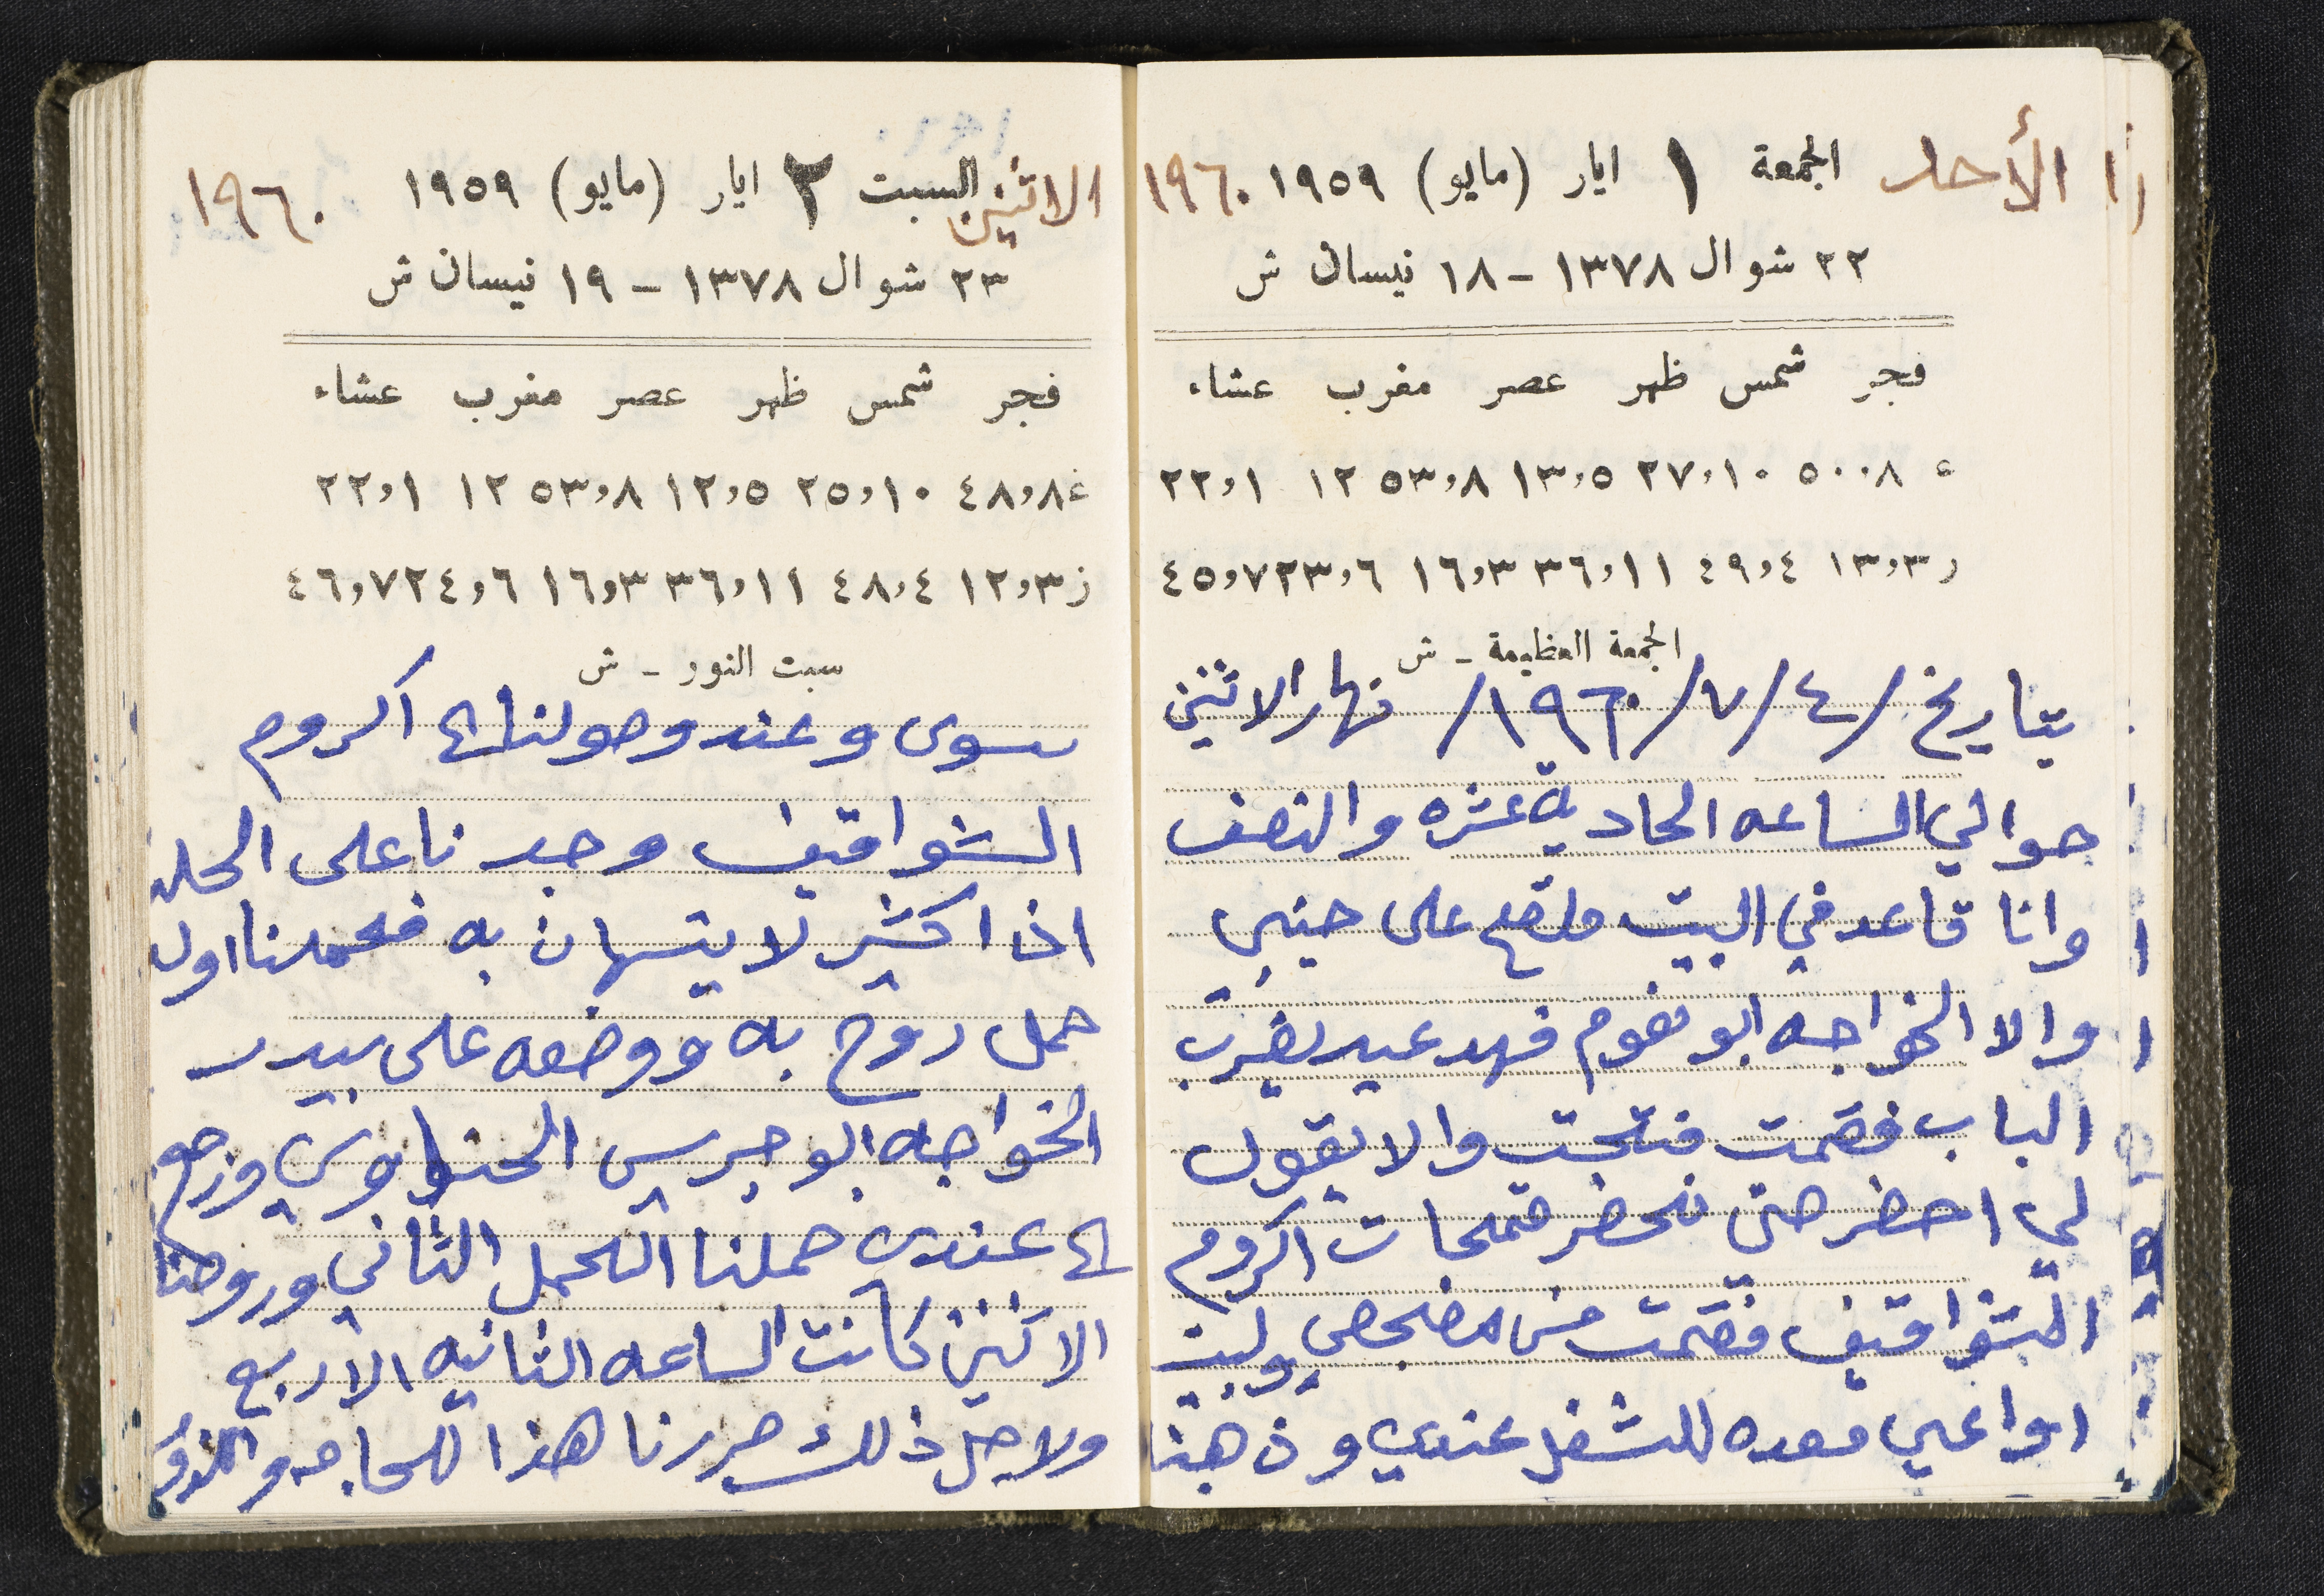 الأحد الجمعة ١ ايار (مايو) ١٩٥٩ ١٩٦٠
٢٢ شوال ١٣٧٨ - ١٨ نيسان ش
فجر شمس ظهر عصر مغرب عشاء
٥٠٠٨ ٢٧,١٠ ١٣,٥ ٥٣,٨ ١٢ ٢٢,١
١٣,٣ ٤٩,٤ ٣٦,١١ ١٦,٣ ٢٣,٦ ٤٥,٧
الجمعة العظيمة - ش
بتاريخ /٤/٧/١٩٦٠/ نهار الاثنين
حوالي الساعه الحاديه عشره والنصف
وانا قاعد في البيت ملقح على جنبي
والا الخواجه ابو نعوم فهد عيد يضرب
الباب فقمت فتحت والا يقول
لي احضر حتى نحضر قمحات اكروم
الشواقيف فقمت من مضجعي ولبست
اواعي معده للشغل عندي وذهبنا
الاثنين السبت ٢ ايار (مايو) ١٩٥٩ ١٩٦٠
٢٣ شوال ١٣٧٨ - ١٩ نيسان ش
فجر شمس ظهر عصر مغرب عشاء
ع ٤٨,٨ ٢٥,١٠ ١٢,٥ ٥٣,٨ ١٢ ٢٢,١
ز ١٢,٣ ٤٨,٤ ٣٦,١١ ١٦,٣ ٢٤,٦ ٤٦,٧
سبت النور - ش
سوى وعند وصولنا الى اكروم
الشواقيف وجدنا على الحله
اذا كثير لا يتسهان به فحملنا اول
حمل روح به ووضعه على بيدر
الخواجه ابو جريس الحناوي ورجع
الى عندي حملنا الحمل الثاني وروحنا
الاثنين كانت الساعه الثانيه الا ربع
ولاجل ذلك حررنا هذا للحاجه